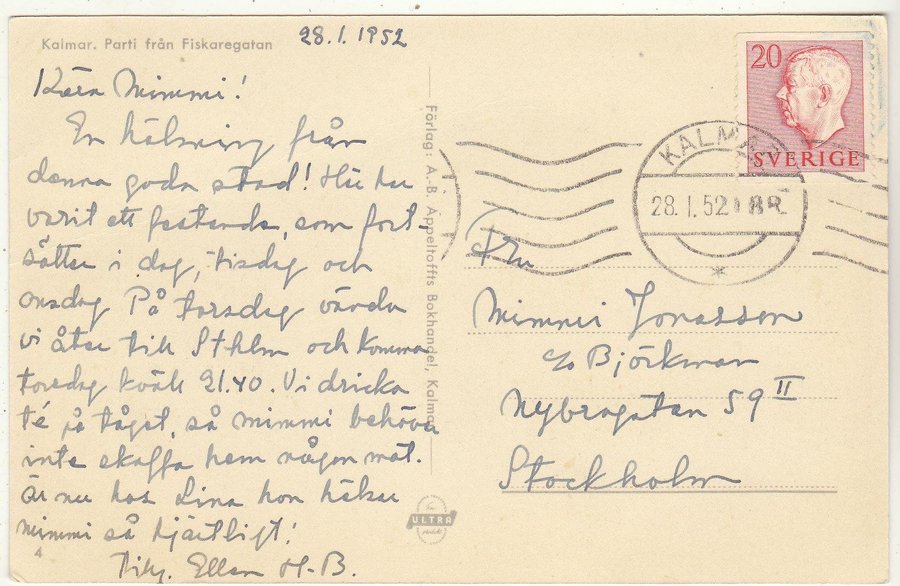 Kalmar. Parti från Fiskaregatan
28.1.1952
Kära Mimmi!
En hälsning från
denna goda stad! Här har
varit ett festande, som fort-
sätter i dag, tisdag och
onsdag. På torsdag vända
vi åter till Sthlm och komma
torsdag kväll 21.40. Vi dricka
té på tåget, så mimmi behöver
inte skaffa hem någon mat.
Är nu hos Lina hon hälsar
mimmi så hjärtligt!
Ellen H-B.
4
Förlag: A.-B. Appeltoffts Bokhandel, Kalmar
ULTRA
20
SVERIGE
KALMAR
28.1.52
Fru
Mimmi Jonasson
c/o Björkman
Nybrogatan 59 II
Stockholm